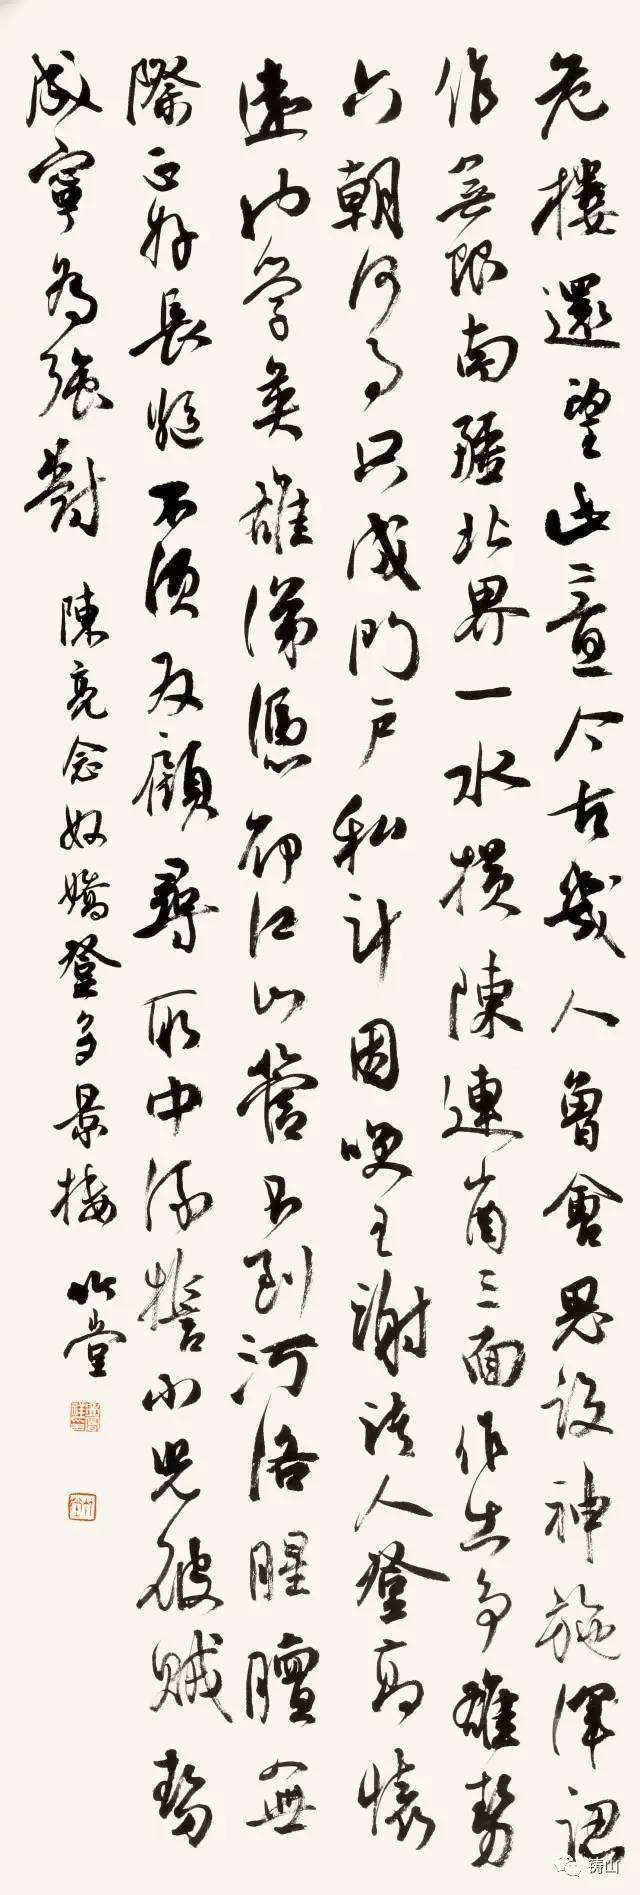 危樓還望此意今古幾人曾會鬼設神施渾認
作無限南疆北界一水横陳連崗三面作出爭雄勢
六朝何事只成門戶私計因咲王謝諸人登高懷
遠也学英雄涕憑却江山管不到河洛腥膻無
際正好長驅不須反顧尋取中流誓小兒破賊勢
成寧為強對 陳亮念奴嬌登多景樓 竹堂
铸山